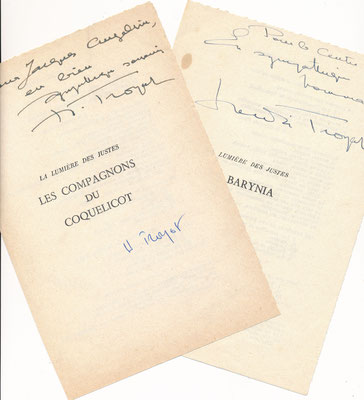 Jacques
en bien
sympathique souvenir
H. Troyat
LA LUMIÈRE DES JUSTES
LES COMPAGNONS
DU
COQUELICOT
H Troyat
Pour le Centre
en sympathique
hommage
Henri Troyat
LUMIÈRE DES JUSTES
BARYNIA